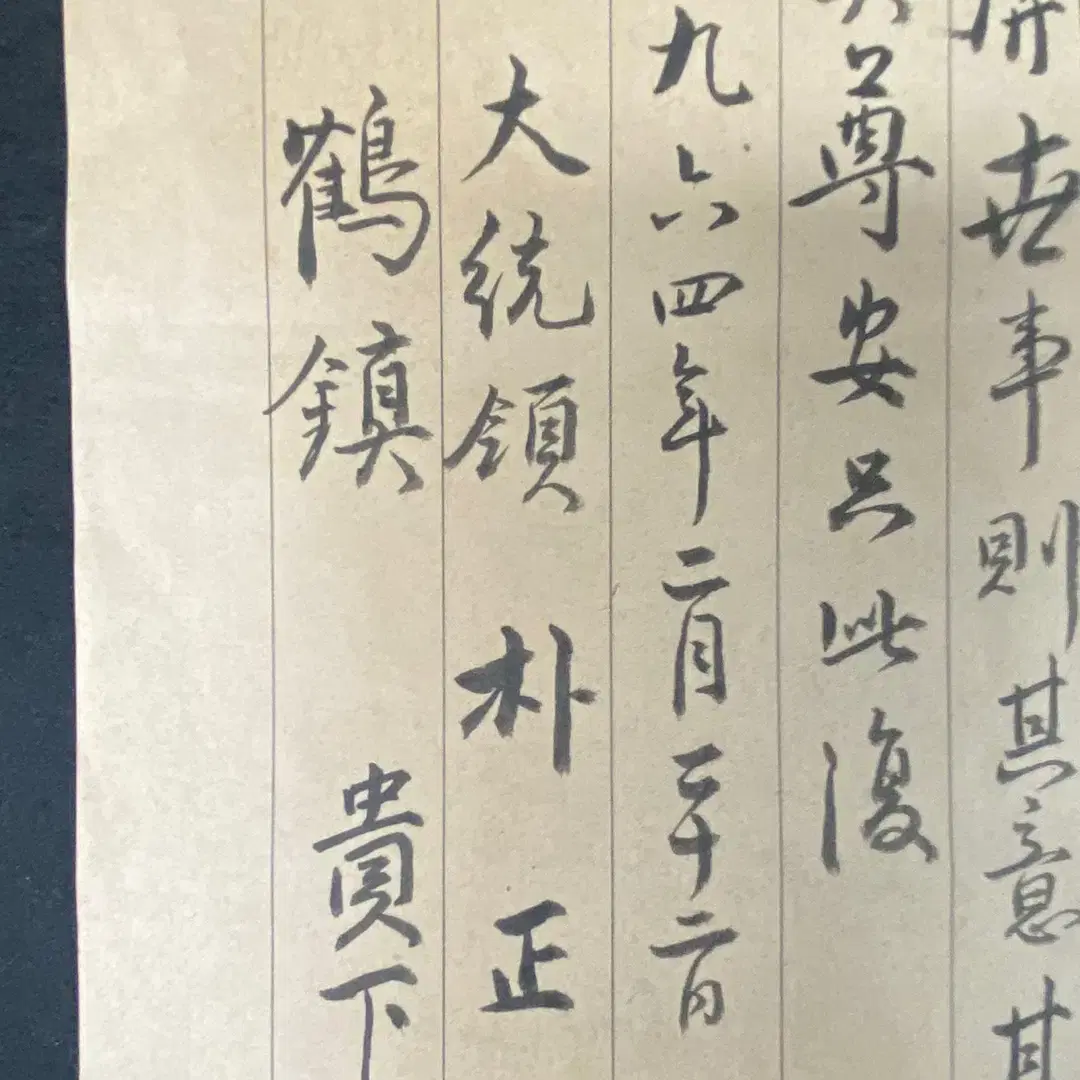 世事則其意息甚
尊安只此復
九六四年二月二十二日
大統領 朴 正
鶴鎭 貴下